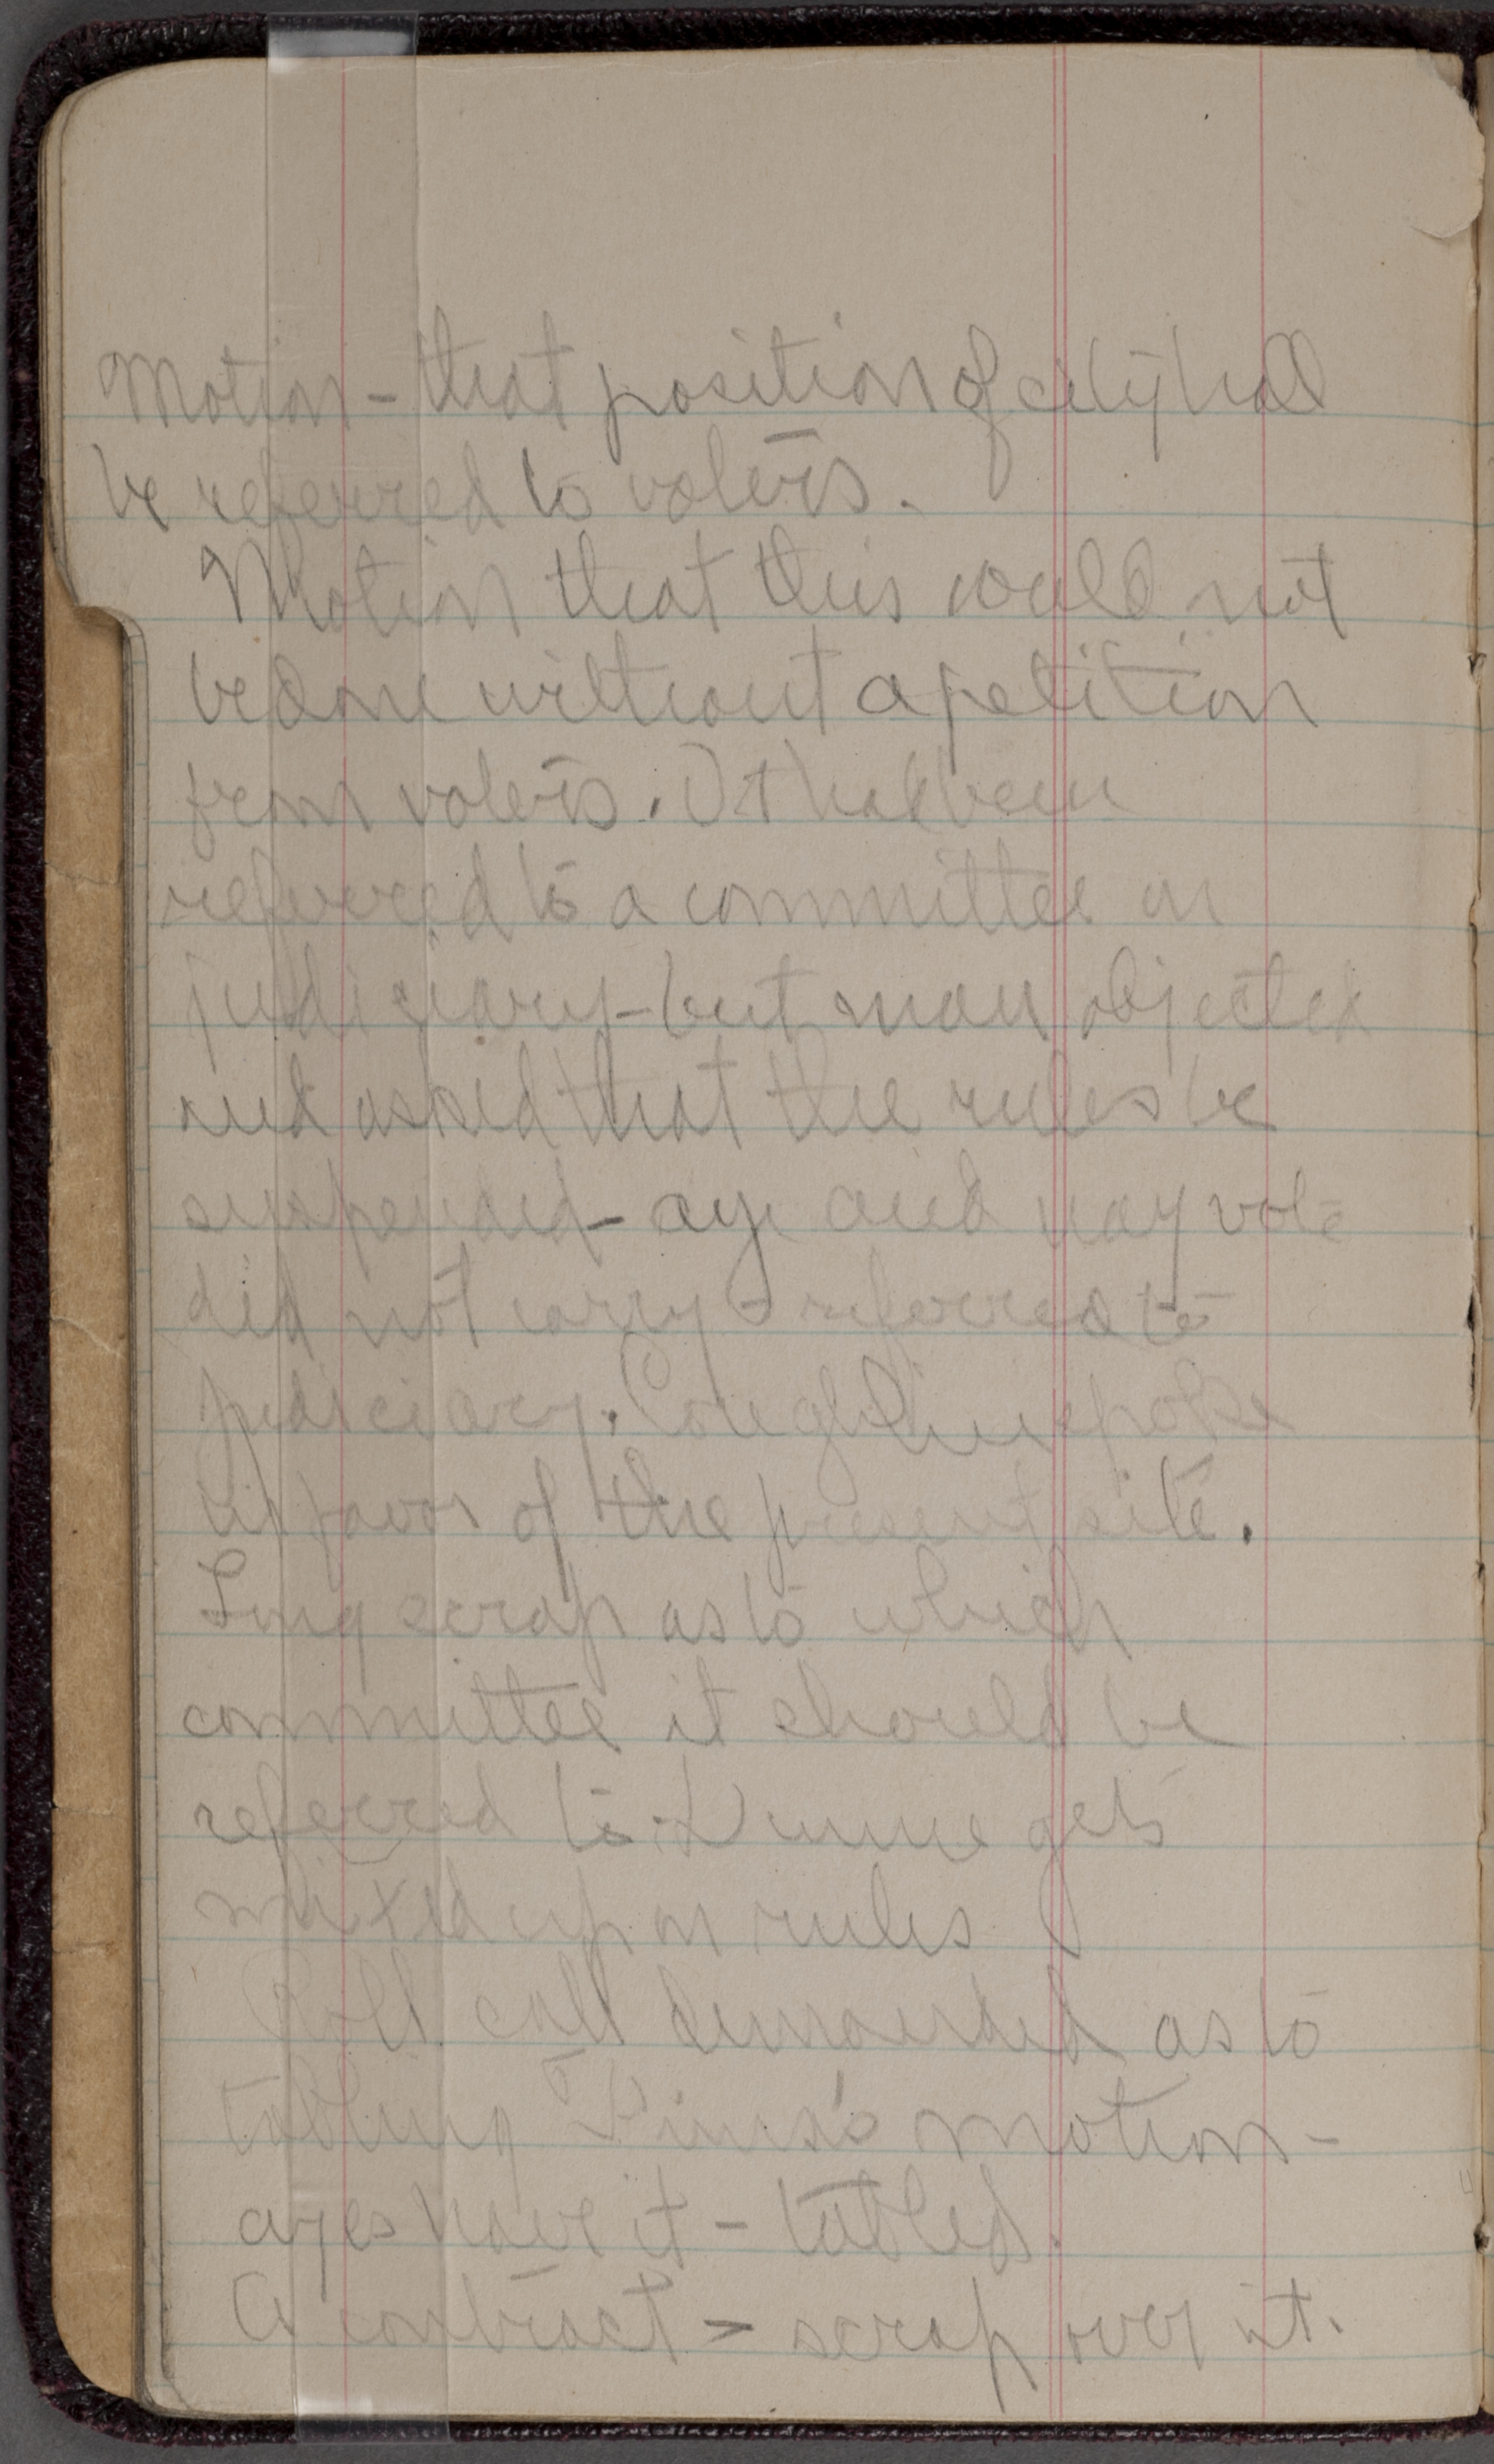 Motion - that position of city hall
be referred to voters.
Motion that this could not
be done without a petition
from voters. It had been
referred to a committee on
judiciary - but man objected
and asked that the rules be
suspended - aye and nay vote
did not carry - referred to
judiciary. Coughlin spoke
in favor of the present site.
Long scrap as to which
committee it should be
referred to. Dunne gets
mixed up on rules
Roll call demanded as to
tabling motion -
ayes have it - tabled.
A contract - scrap over it.